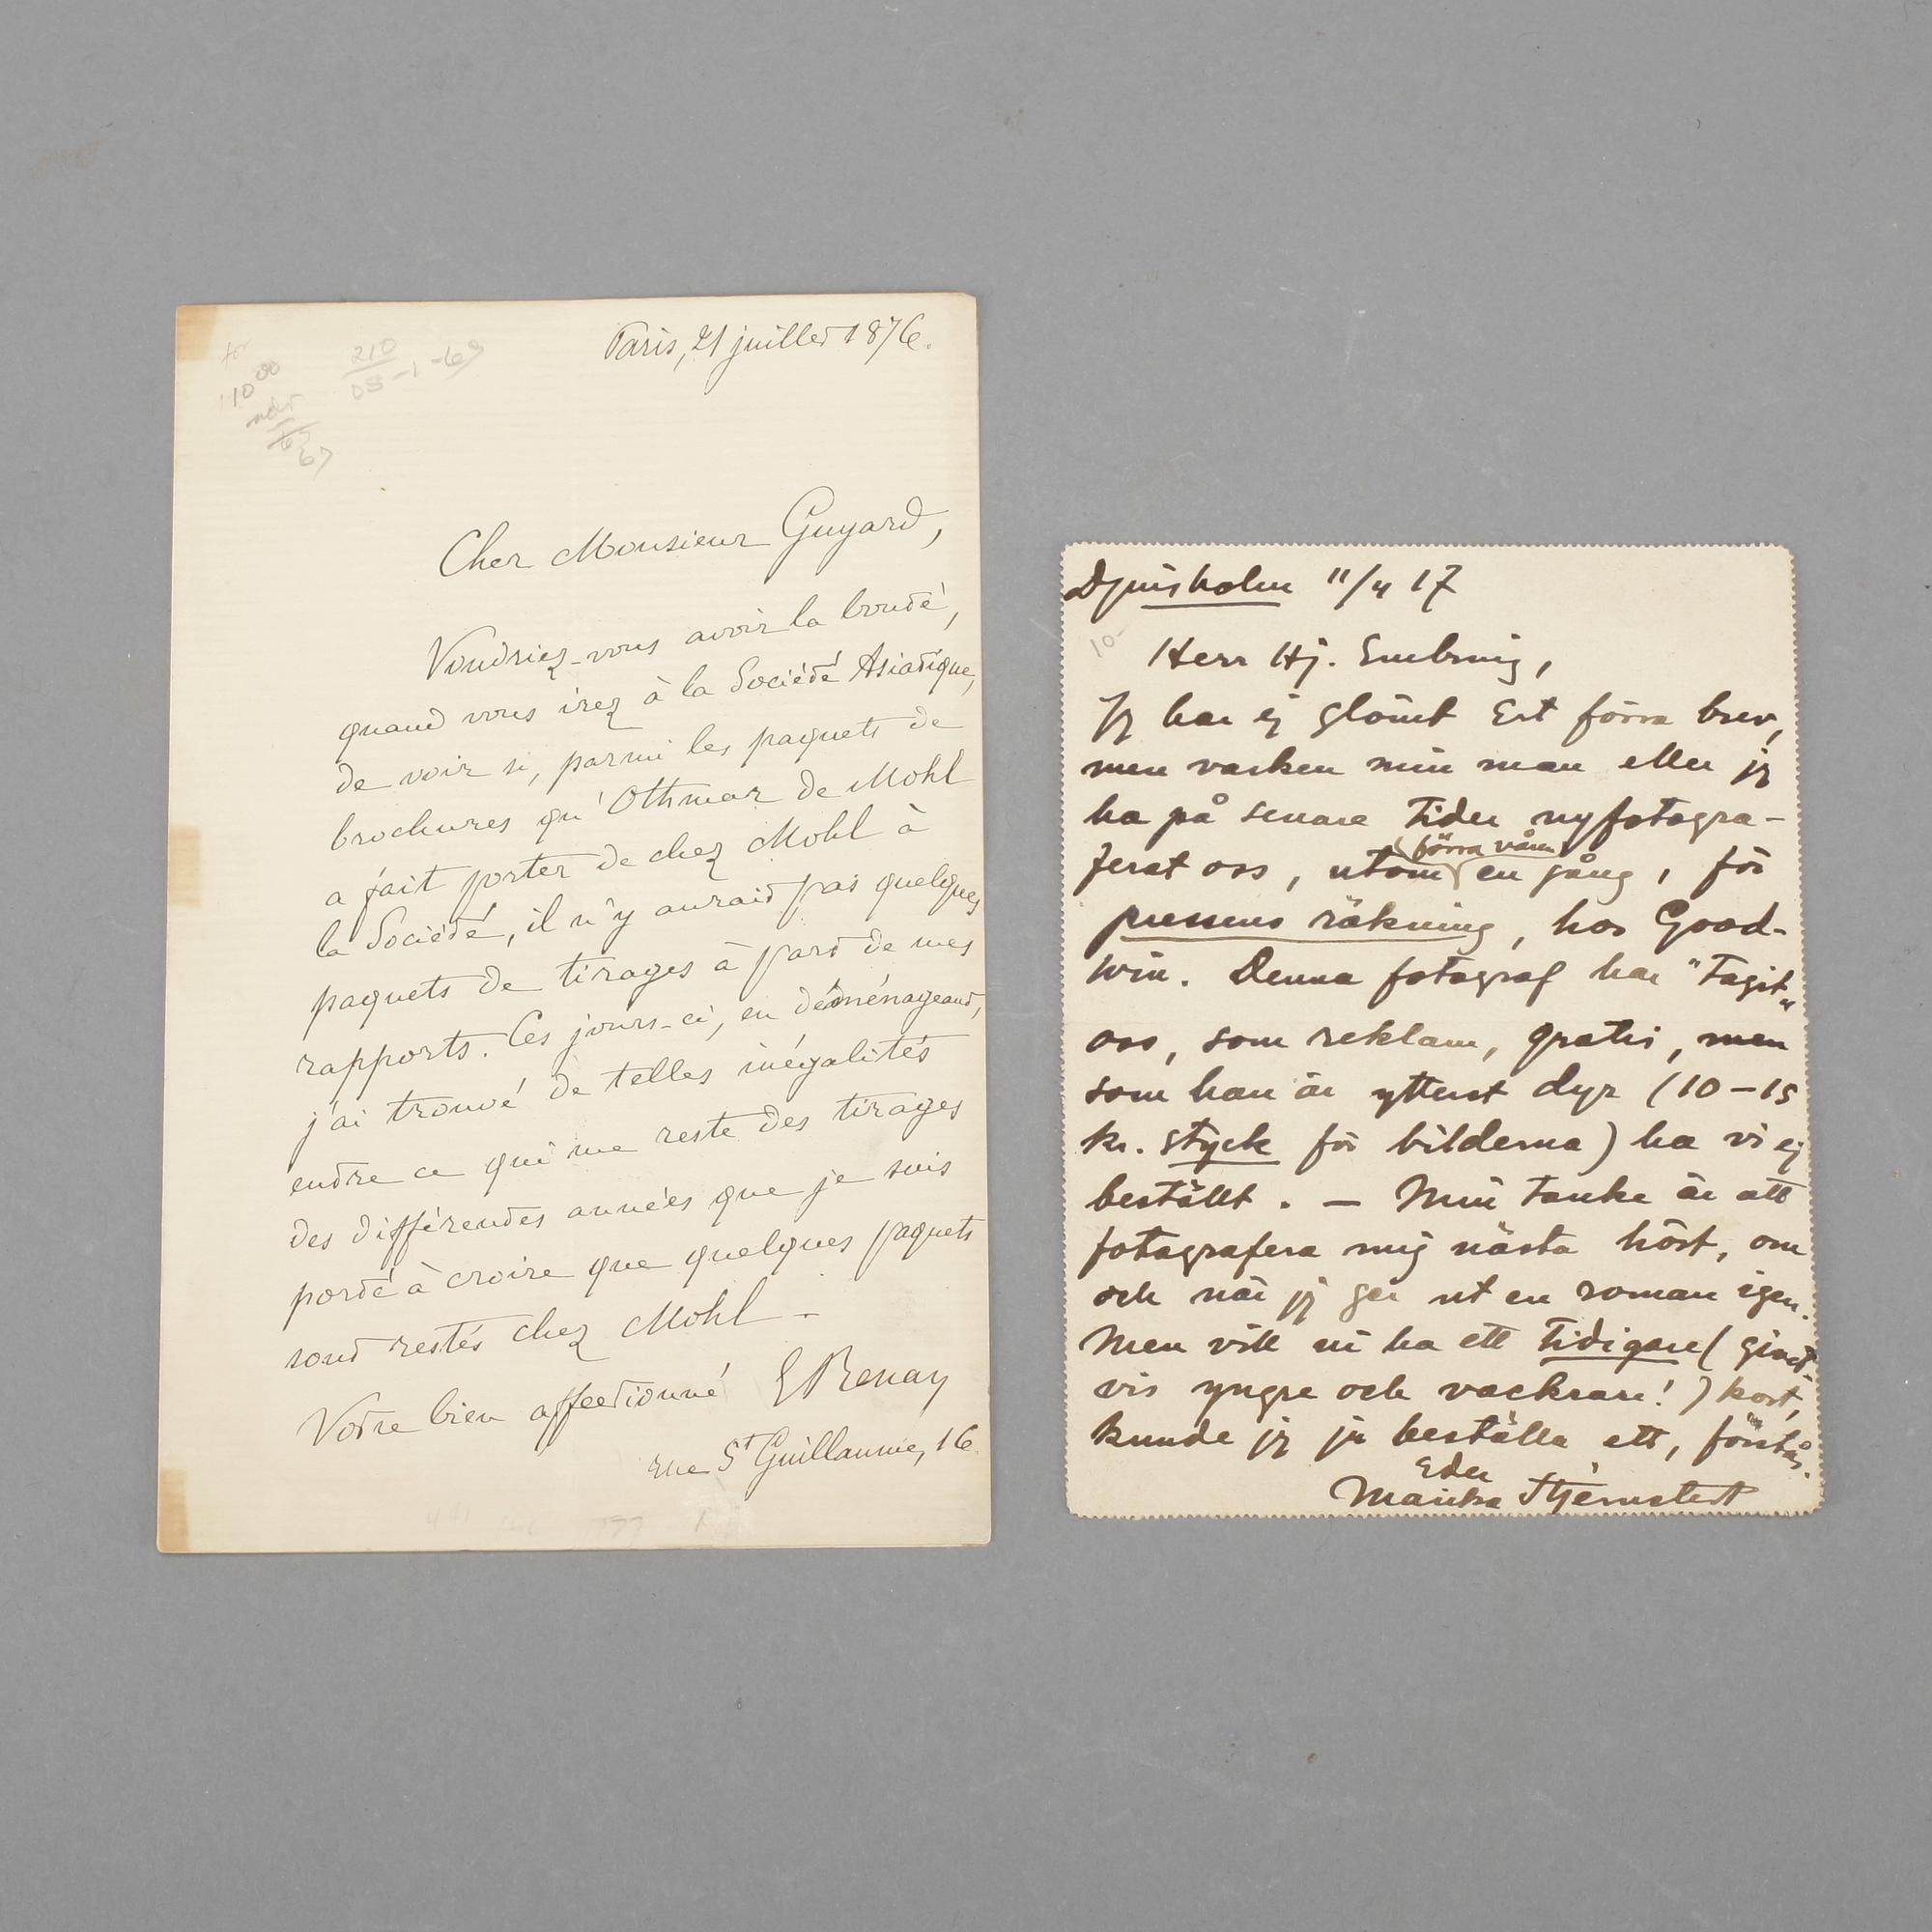 Paris, 21 juillet 1876.
210
08-1-69
10 00
67
Cher Monsieur Guyard,
Voudriez-vous avoir la bonté,
quand vous irez à la Société Asiatique,
de voir si, parmi les paquets de
brochures qu'Othmar de Mohl
a fait porter de chez Mohl à
la Société, il n'y aurait pas quelques
paquets de tirages à part de mes
rapports. Ces jours-ci, en déménageant,
j'ai trouvé de telles inégalités
entre ce qui me reste des tirages
des différentes années que je suis
porté à croire que quelques paquets
sont restés chez Mohl –
Votre bien affectionné E Renan
rue St Guillaume, 16
Djursholm 11/4 17
10-
Herr Hj. Embring,
Jg har ej glömt Ert förra brev,
men varken min man eller jg
ha på senare tider nyfotogra-
ferat oss, utom (förra våren) en gång, för
pressens räkning, hos Good-
win. Denna fotograf har "tagit"
oss, som reklam, gratis, men
som han är ytterst dyr (10–15
kr. styck för bilderna) ha vi ej
beställt. – Min tanke är att
fotografera mig nästa höst, om
och när jg ger ut en roman igen.
Men vill ni ha ett tidigare (givet-
vis yngre och vackrare!) kort,
kunde jg ju beställa ett, förstås.
Eder
Marika Stjernstedt